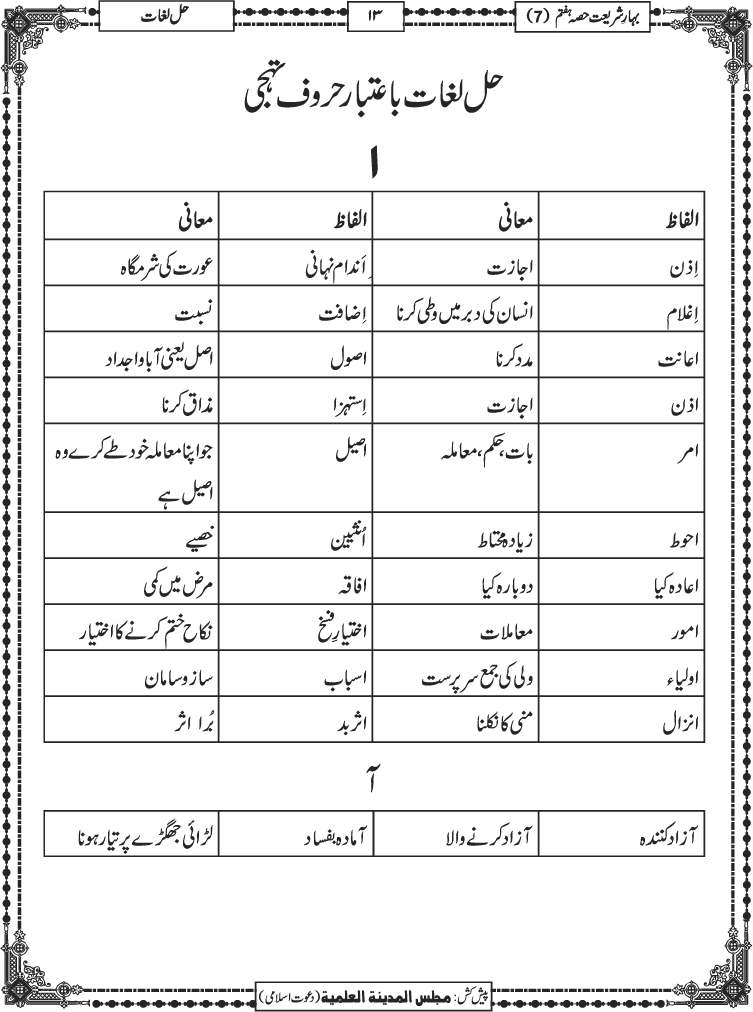 بہارِ شریعت حصہ ہفتم (7)
۱۳
حل لغات
حل لغات باعتبار حروف تہجی
ا
الفاظ معانی الفاظ معانی
اِذن اجازت اَندام نہانی عورت کی شرمگاہ
اِغلام انسان کی دبر میں وطی کرنا اِضافت نسبت
اعانت مدد کرنا اصول اصل یعنی آباواجداد
اذن اجازت اِستہزا مذاق کرنا
امر بات، حکم، معاملہ اصیل جو اپنا معاملہ خود طے کرے وہ
اصیل ہے
احوط زیادہ محتاط اُنثیین خصیے
اعادہ کیا دوبارہ کیا افاقہ مرض میں کمی
امور معاملات اختیارِ فسخ نکاح ختم کرنے کا اختیار
اولیاء ولی کی جمع سرپرست اسباب سازوسامان
انزال منی کا نکلنا اثر بد بُرا اثر
آ
آزاد کنندہ آزاد کرنے والا آمادہ بفساد لڑائی جھگڑے پر تیار ہونا
پیش کش: مجلس المدينة العلمية (دعوت اسلامی)